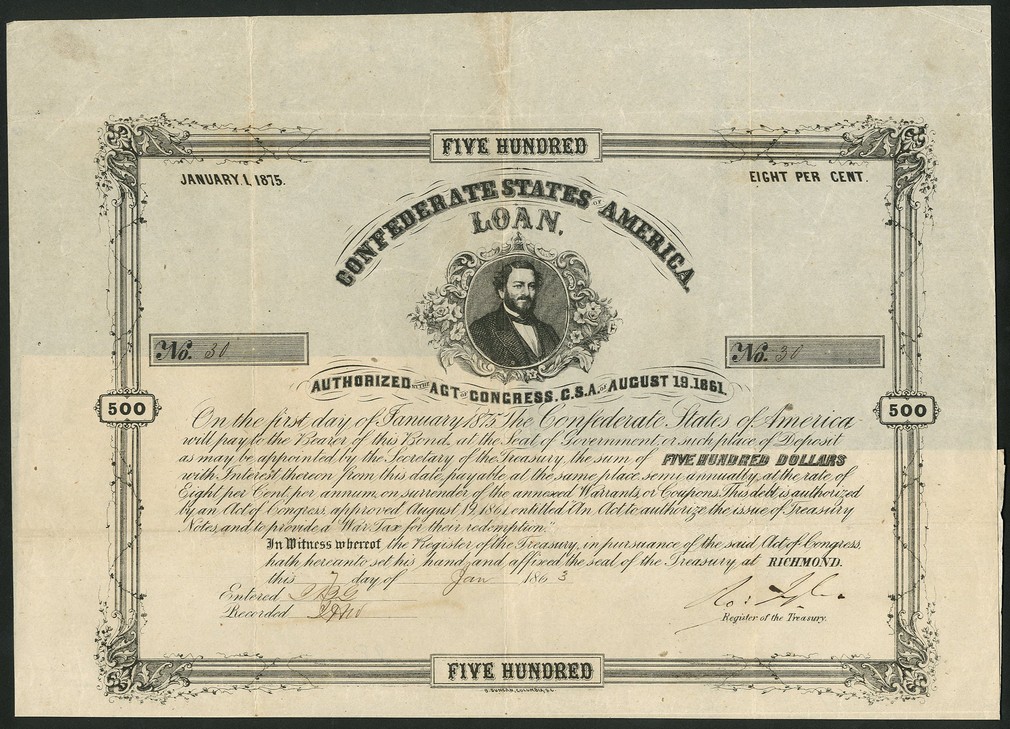 FIVE HUNDRED
JANUARY. 1, 1875.
EIGHT PER CENT.
CONFEDERATE STATES OF AMERICA.
LOAN.
No. 30
No. 30
AUTHORIZED BY THE ACT OF CONGRESS. C.S.A. OF AUGUST 19. 1861.
500
500
On the first day of January 1875 The Confederate States of America
will pay to the Bearer of this Bond, at the Seat of Government, or such place of Deposit
as may be appointed by the Secretary of the Treasury, the sum of FIVE HUNDRED DOLLARS
with Interest thereon from this date, payable at the same place, semi annually, at the rate of
Eight per Cent, per annum, on surrender of the annexed Warrants, or Coupons. This debt is authorized
by an Act of Congress, approved August 19, 1861, entitled "An Act to authorize the issue of Treasury
Notes, and to provide a War Tax for their redemption."
In Witness whereof the Register of the Treasury, in pursuance of the said Act of Congress,
hath hereunto set his hand, and affixed the seal of the Treasury, at RICHMOND.
this 7 day of Jan 1863
Entered
Recorded
Register of the Treasury.
FIVE HUNDRED
B. DUNCAN, COLUMBIA, S.C.